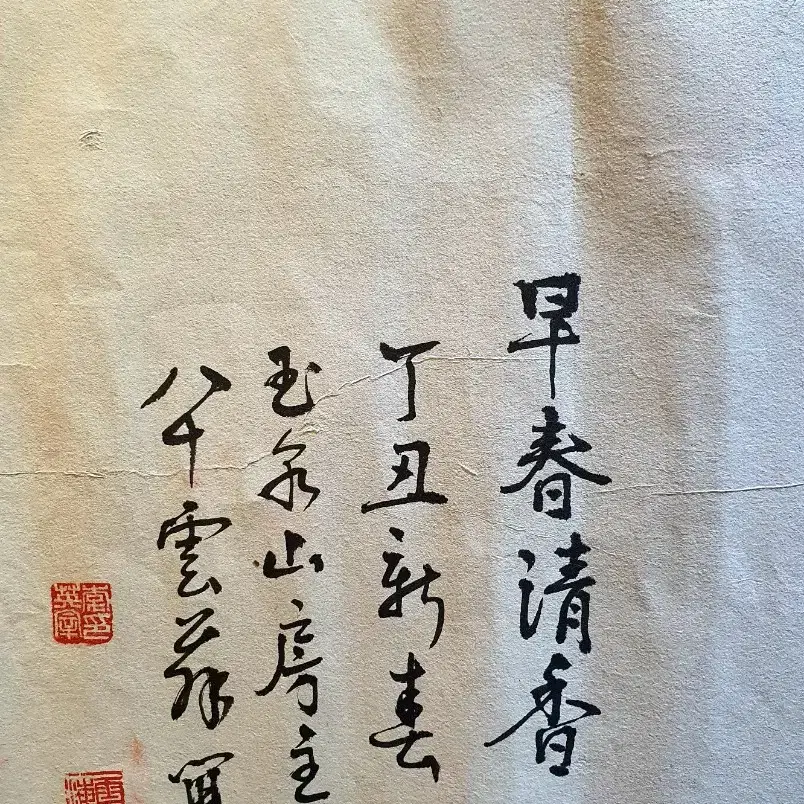 早春清香
丁丑新春
玉泉山房主
八十雲